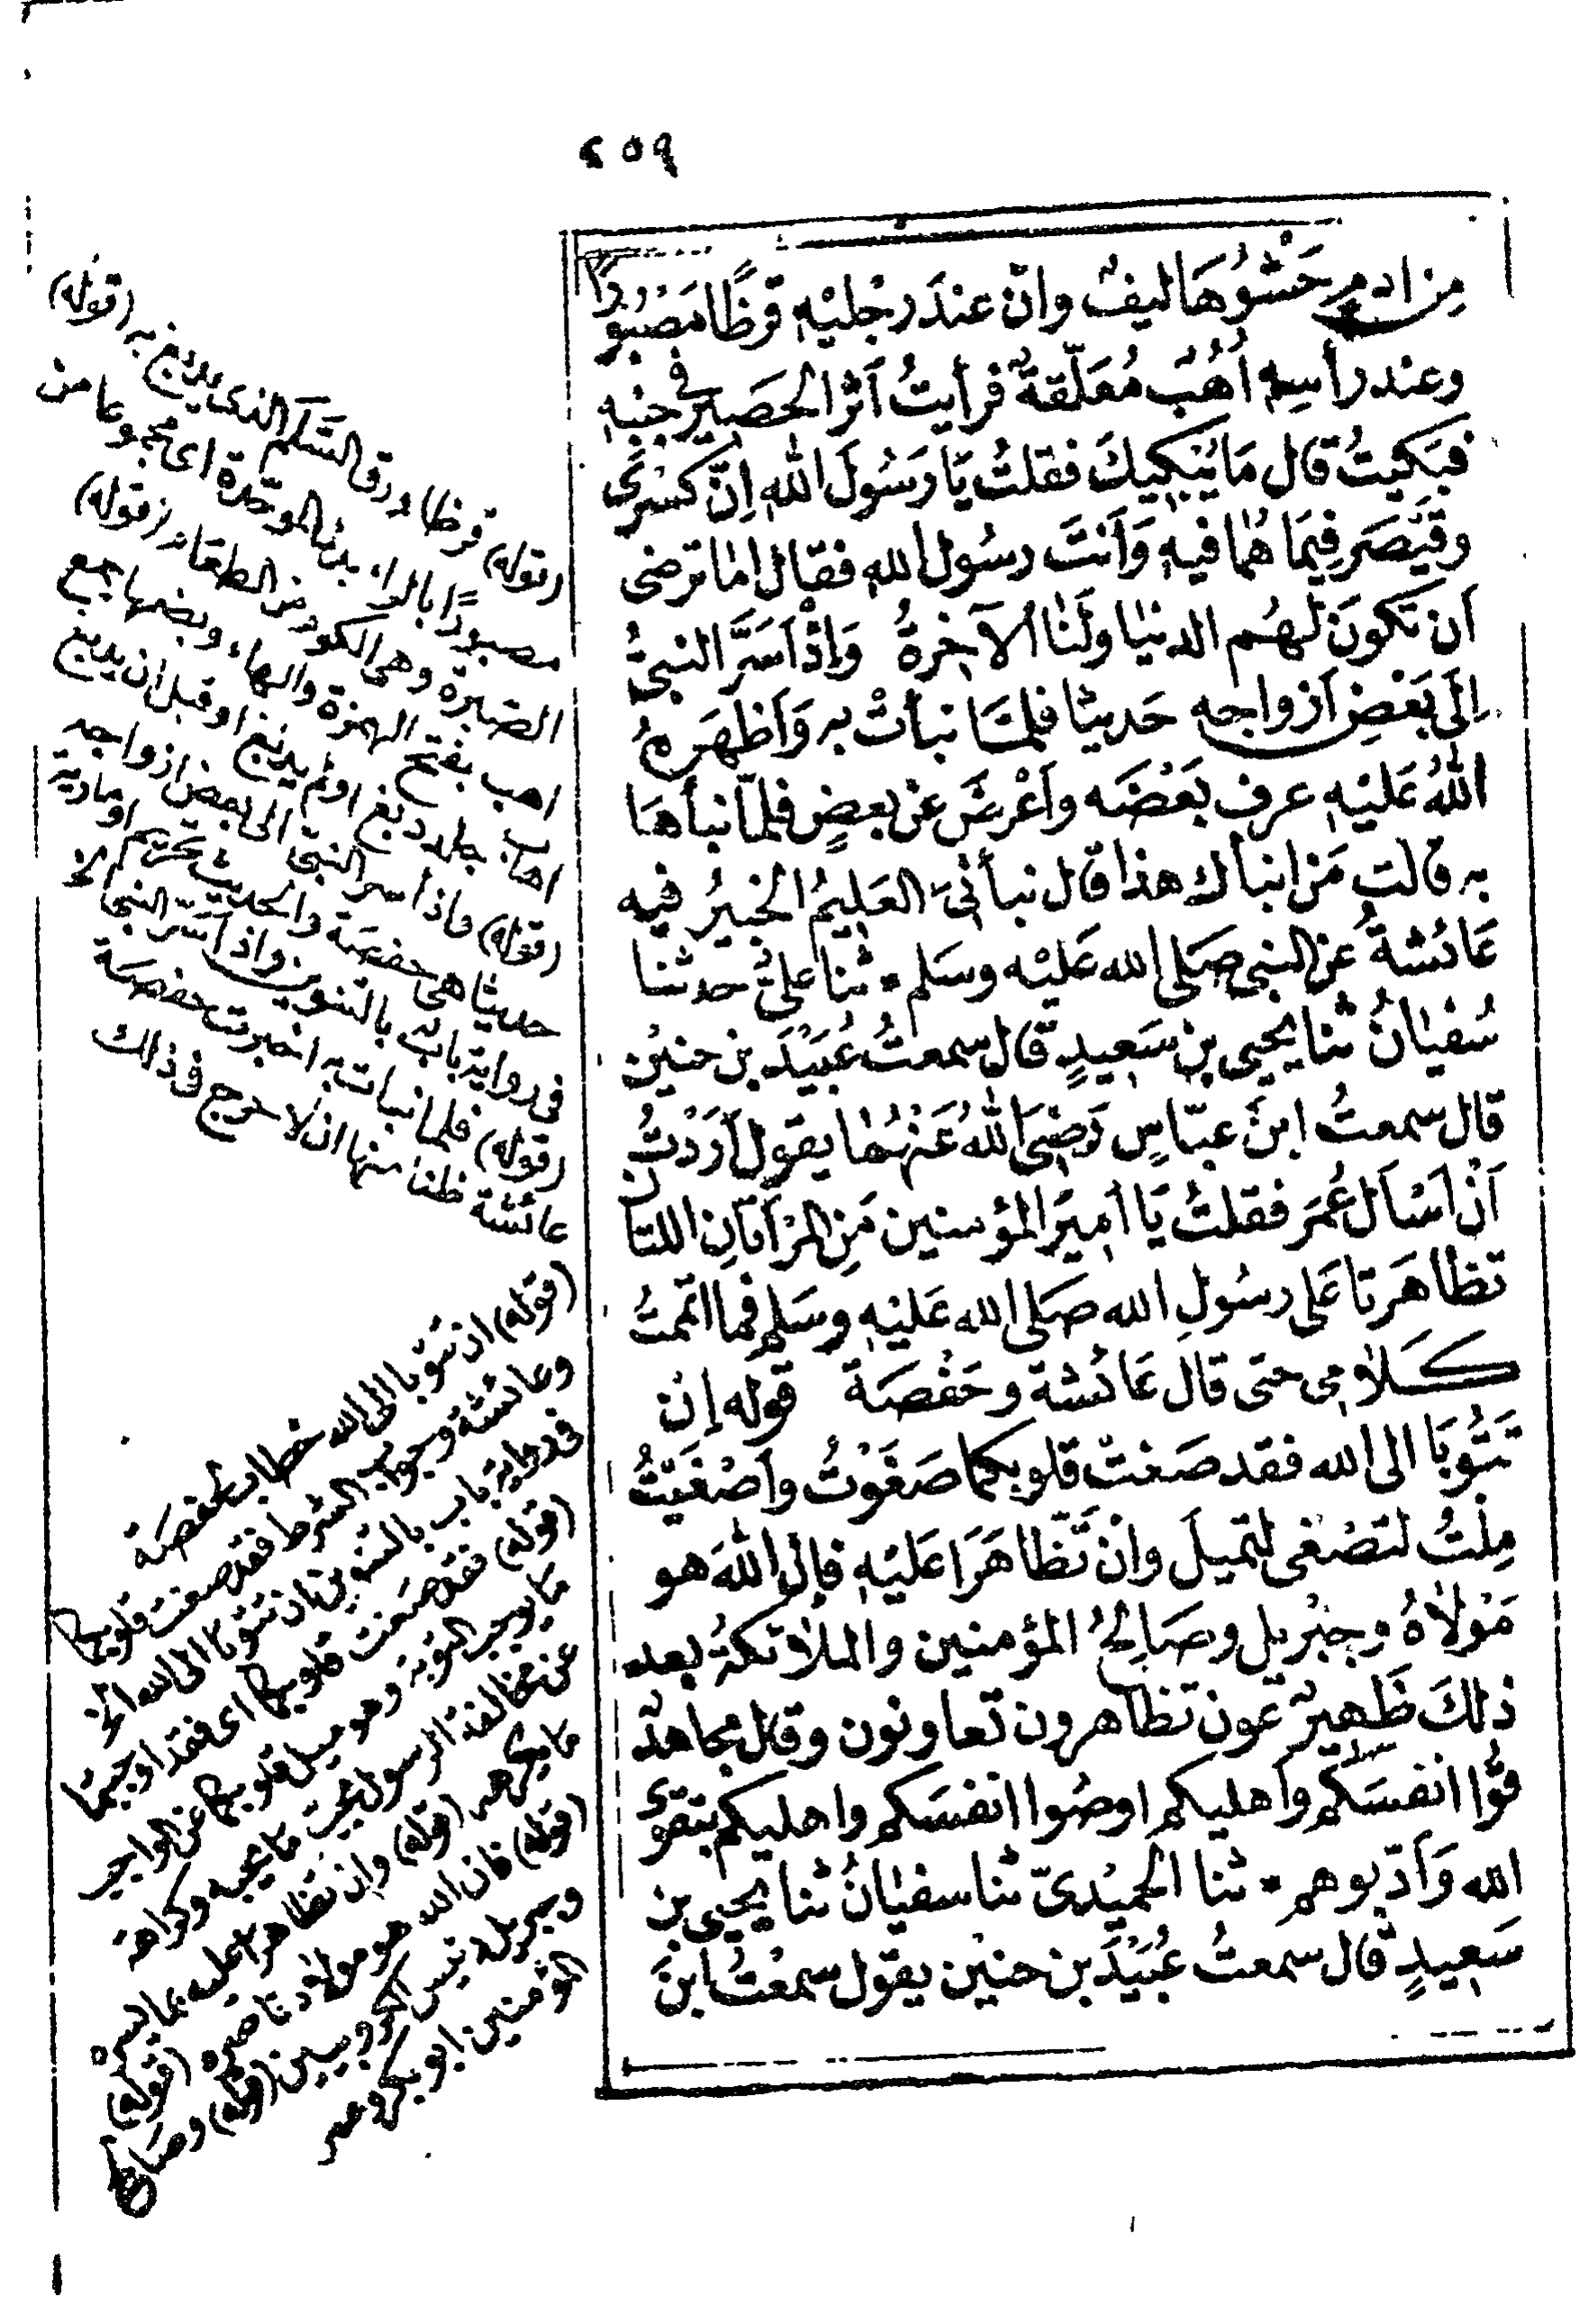 ٤٥٩
مِنْ ادمٍ حَشْوُهَا ليفٌ وانّ عندَ رجْليْهِ قرظًا مَصْبُورًا
وعند رأسِهِ أُهُبٌ مُعَلّقةٌ فرأيتُ اَثر الحَصِيرِ في جنْبِهِ
فبَكَيتُ قال مَا يُبْكِيكَ فقلتُ يَا رَسُولَ اللهِ اِنّ كسْرَى
وقَيْصَرَ فِيمَا هُمَا فيهِ وَاَنتَ رسُول اللهِ فقال امَا ترضى
اَن تكونَ لَهُم الدنيَا ولَنَا الآخِرةُ وَاِذْ اَسَرَّ النبيُّ
اِلَى بَعْضِ اَزواجِهِ حَديثا فلمّا نبأتْ بِهِ وَاَظهَرهُ
اللهُ عَليْهِ عرف بَعْضَه واَعْرضَ عن بعضٍ فلمّا نبأهَا
به قالت مَنْ انبأك هذا قال نبأنيَ العَلِيمُ الخبيرُ فيه
عَائشةُ عن النبي صَلى الله عَليْه وسَلم * ثنا عليٌّ حدثنا
سُفيَانُ ثنا يحيى بن سَعِيدٍ قال سمعتُ عُبَيْدَ بن حنيْن
قال سمعتُ ابنَ عبّاسٍ رَضِيَ اللهُ عَنْهُمَا يقول اَرَدْتُ
اَنْ اَسْاَل عُمَرَ فقلتُ يَا اَمِيرَ المؤمنين مَنِ المرْاَتَانِ اللتان
تظاهَرتا عَلى رسُولِ الله صَلى الله عَليْهِ وسَلم فما اتممتُ
كَلاَمِي حتى قال عَائشة وحَفْصَة قوله اِن
تَتُوبَا الى الله فقد صَغتْ قلوبكما صَغَوْتُ واَصْغَيْتُ
مِلْتُ لتصْغى لتميلَ وانْ تَظّاهَرَا عَليْهِ فاِن اللهَ هو
مَوْلاَهُ وجبْريل وصَالِحُ المؤمنين والملائكةُ بعد
ذلكَ ظَهيرٌ عون تظاهرون تعاونون وقال مجاهدٌ
قُوا انفسَكم واَهليكم اوصُوا انفسَكم واهليكم بتقوى
الله وَاَدّبوهم * ثنا الحميْديّ ثنا سفيَانُ ثنا يحيى بن
سَعِيدٍ قال سمعتُ عُبَيْدَ بن حنيْن يقول سمعْتُ ابنَ
(قوله) قرظا ورق السَّلَم الذي يدبغ به (قوله)
مصبورًا بالراء بدل الموحدة اى مجموعا من
الصبرة وهى الكود من الطعام (قوله)
اهب بفتح الهمزة والهاء وبضمها جمع
اهاب جلد دبغ اولم يدبغ او قبل ان يدبغ
(قوله) واذ اسر النبي الى بعض ازواجه
حديثا هى حفصَة والحديث تحريم او مارية
فى رواية بابٌ بالتنوين واذ اسَرّ النبى الخ
(قوله) فلما نبات به اخبرت حفصَة
عائشة ظنا منها ان لا حرج فى ذلك
(قوله) ان تتوبا الى الله خطاب لحفصَة
وعائشة وجواب الشرط فقد صغت قلوبكما
فى رواية باب بالتنوين ان تتوبا الى الله الخ
(قوله) فقد صَغت قلوبكما اى فقد اوجبتما
ما يوجب التوبة وهو ميل قلوبكما عن الواجب
عن مخالفة الرسول بحب مَا يحبه وكراهة
ما يكرهه (قوله) وان تظاهرا عليه بما يسره
(قوله) فان الله هو مولاه ناصره (قوله)
وجبريل رئيس الكروبيين (قوله) وصَالح
المؤمنين ابو بكر وعمر